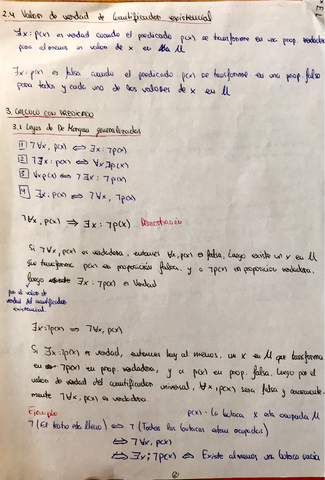 2.4 Valor de verdad de Cuantificador existencial
∃x: p(x) es verdad cuando el predicado p(x) se transforme en una prop. verdad.
para al menos un valor de x en la U
∃x: p(x) es falsa cuando el predicado p(x) se transforme en una prop. falsa
para todos y cada uno de los valores de x en U
3. CALCULO CON PREDICADO
3.1 Leyes de De Morgan generalizadas
1 ¬∀x, p(x) ⟺ ∃x: ¬p(x)
2 ¬∃x: p(x) ⟺ ∀x, ¬p(x)
3 ∀x p(x) ⟺ ¬∃x: ¬p(x)
4 ∃x: p(x) ⟺ ¬∀x, ¬p(x)
¬∀x, p(x) ⟹ ∃x: ¬p(x) Demostración
Si ¬∀x, p(x) es verdadera, entonces ∀x, p(x) es falsa. Luego existe un x en U
que transforma p(x) en proposición falsa, y a ¬p(x) en proposición verdadera.
luego ∃x: ¬p(x) es Verdad
por el valor de
verdad del cuantificador
existencial.
∃x: ¬p(x) ⟹ ¬∀x, p(x)
Si ∃x: ¬p(x) es verdad, entonces hay al menos, un x en U que transforma
en ¬p(x) en prop. verdadera, y a p(x) en prop. falsa. Luego por el
valor de verdad del cuantificador universal, ∀x, p(x) será falsa y consecuente-
mente ¬∀x, p(x) es verdadera.
Ejemplo p(x) = La butaca x esta ocupada U
¬(El teatro esta lleno) ⟺ ¬(Todas las butacas estan ocupadas)
⟺ ¬∀x, p(x)
⟺ ∃x; ¬p(x) ⟺ Existe al menos una butaca vacia